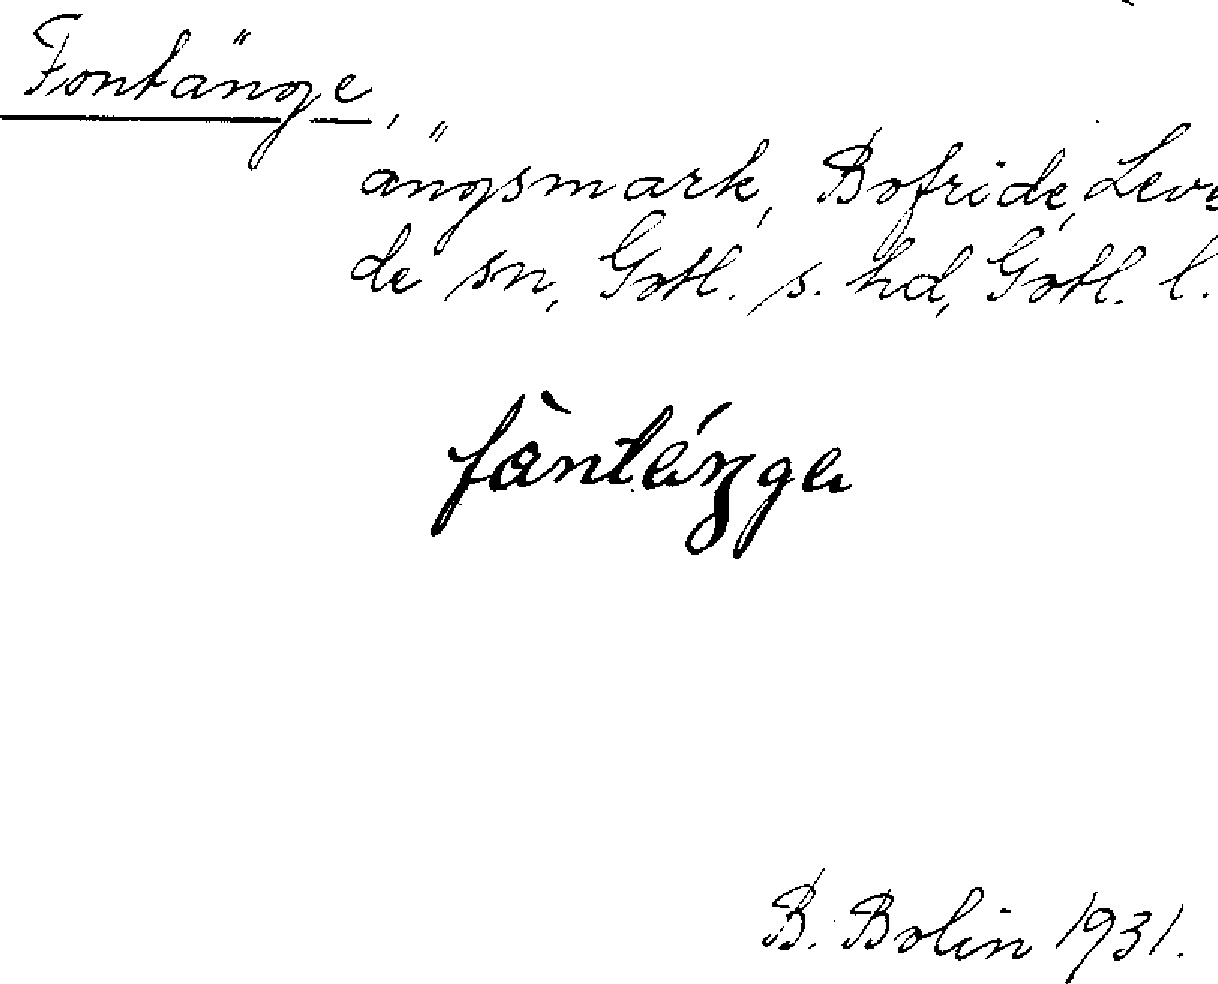 Fontänge,
ängsmark, Bofride, Leve
de sn, Gotl. s. hd, Gotl. l.
fàntéŋgɐ
B. Bolin 1931.